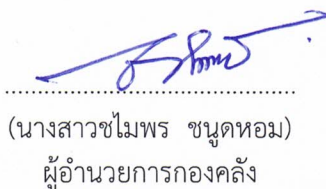 (นางสาวชไมพร ชนูดหอม)
ผู้อำนวยการกองคลัง